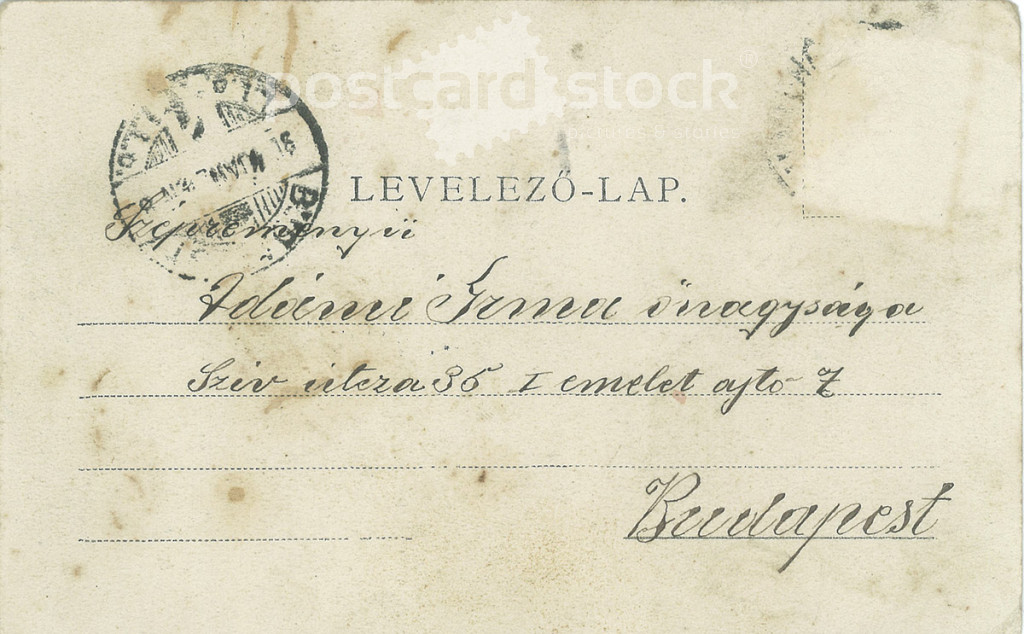 postcard stock
LEVELEZŐ-LAP.
Szépreményü
Adámi Irma önagysága
Sziv utcza 35 I emelet ajtó 7
Budapest